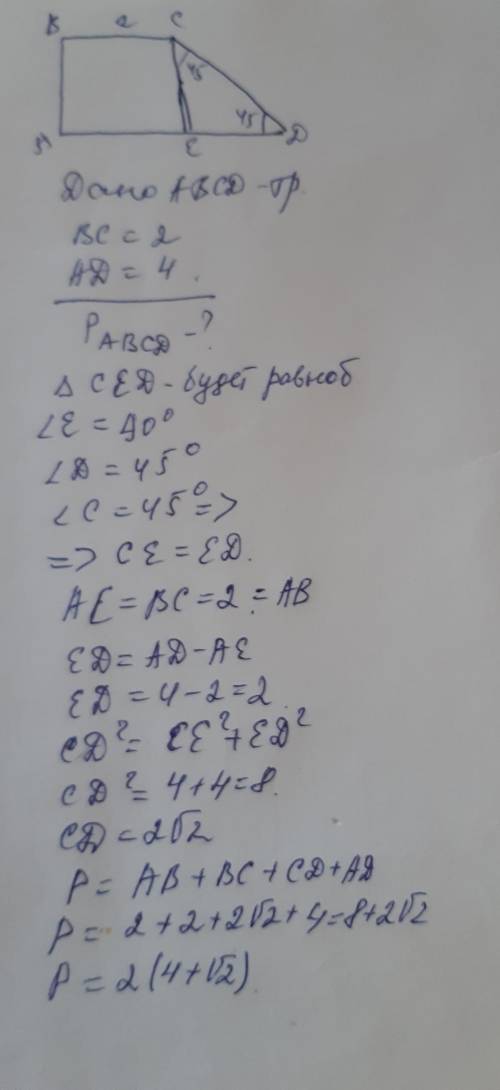 B 2 C
45
45
A E D
Дано ABCD - тр.
BC = 2
AD = 4.
P ABCD - ?
Δ CED - будет равноб
∠E = 90°
∠D = 45°
∠C = 45° =>
=> CE = ED.
AE = BC = 2 = AB
ED = AD - AE
ED = 4 - 2 = 2.
CD² = CE² + ED²
CD² = 4 + 4 = 8.
CD = 2√2
P = AB + BC + CD + AD
P = 2 + 2 + 2√2 + 4 = 8 + 2√2
P = 2(4 + √2).